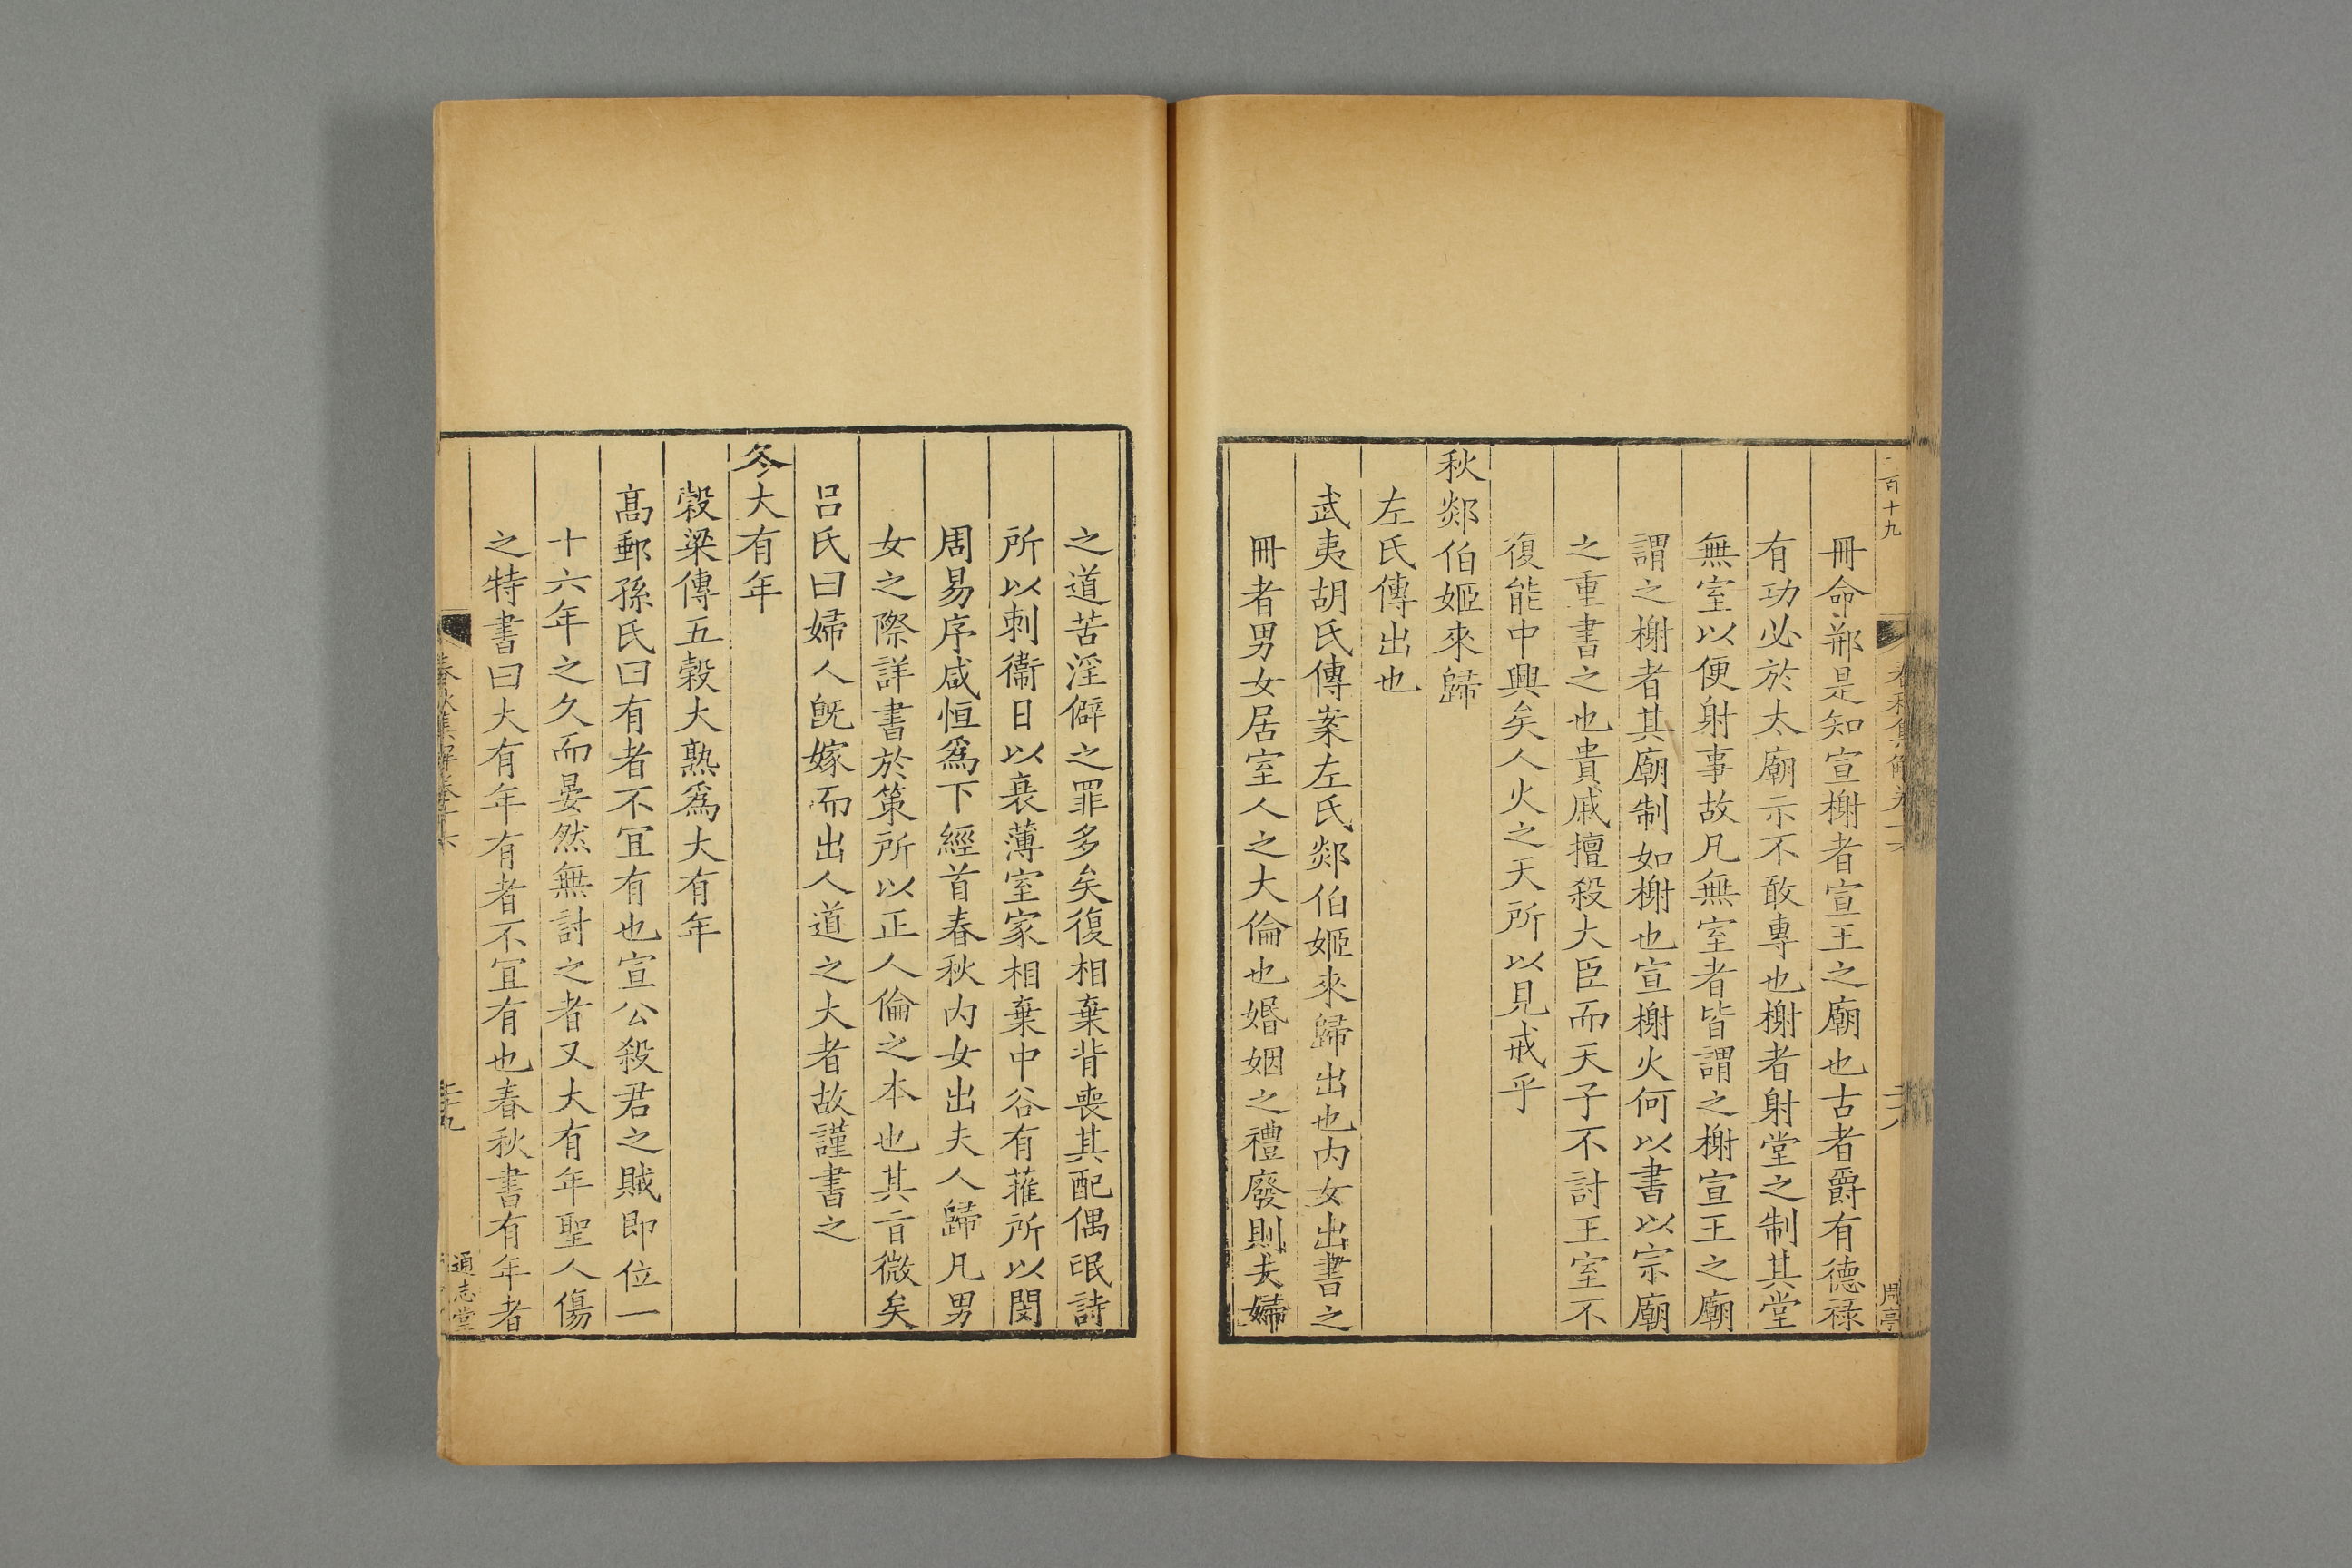 百十九
冊命郱是知宣榭者宣王之廟也古者爵有德祿
有功必於太廟示不敢專也榭者射堂之制其堂
無室以便射事故凡無室者皆謂之榭宣王之廟
謂之榭者其廟制如榭也宣榭火何以書以宗廟
之重書之也貴戚擅殺大臣而天子不討王室不
復能中興矣人火之天所以見戒乎
秋郯伯姬來歸
左氏傳出也
武夷胡氏傳案左氏郯伯姬來歸出也内女出書之
冊者男女居室人之大倫也婚姻之禮廢則夫婦
之道苦淫僻之罪多矣復相棄背喪其配偶氓詩
所以刺衞日以衰薄室家相棄中谷有蓷所以閔
周易序咸恒爲下經首春秋内女出夫人歸凡男
女之際詳書於策所以正人倫之本也其旨微矣
吕氏曰婦人旣嫁而出人道之大者故謹書之
冬大有年
穀梁傳五穀大熟爲大有年
髙郵孫氏曰有者不冝有也宣公殺君之賊即位一
十六年之久而晏然無討之者又大有年聖人傷
之特書曰大有年有者不冝有也春秋書有年者
春秋集解
通志堂